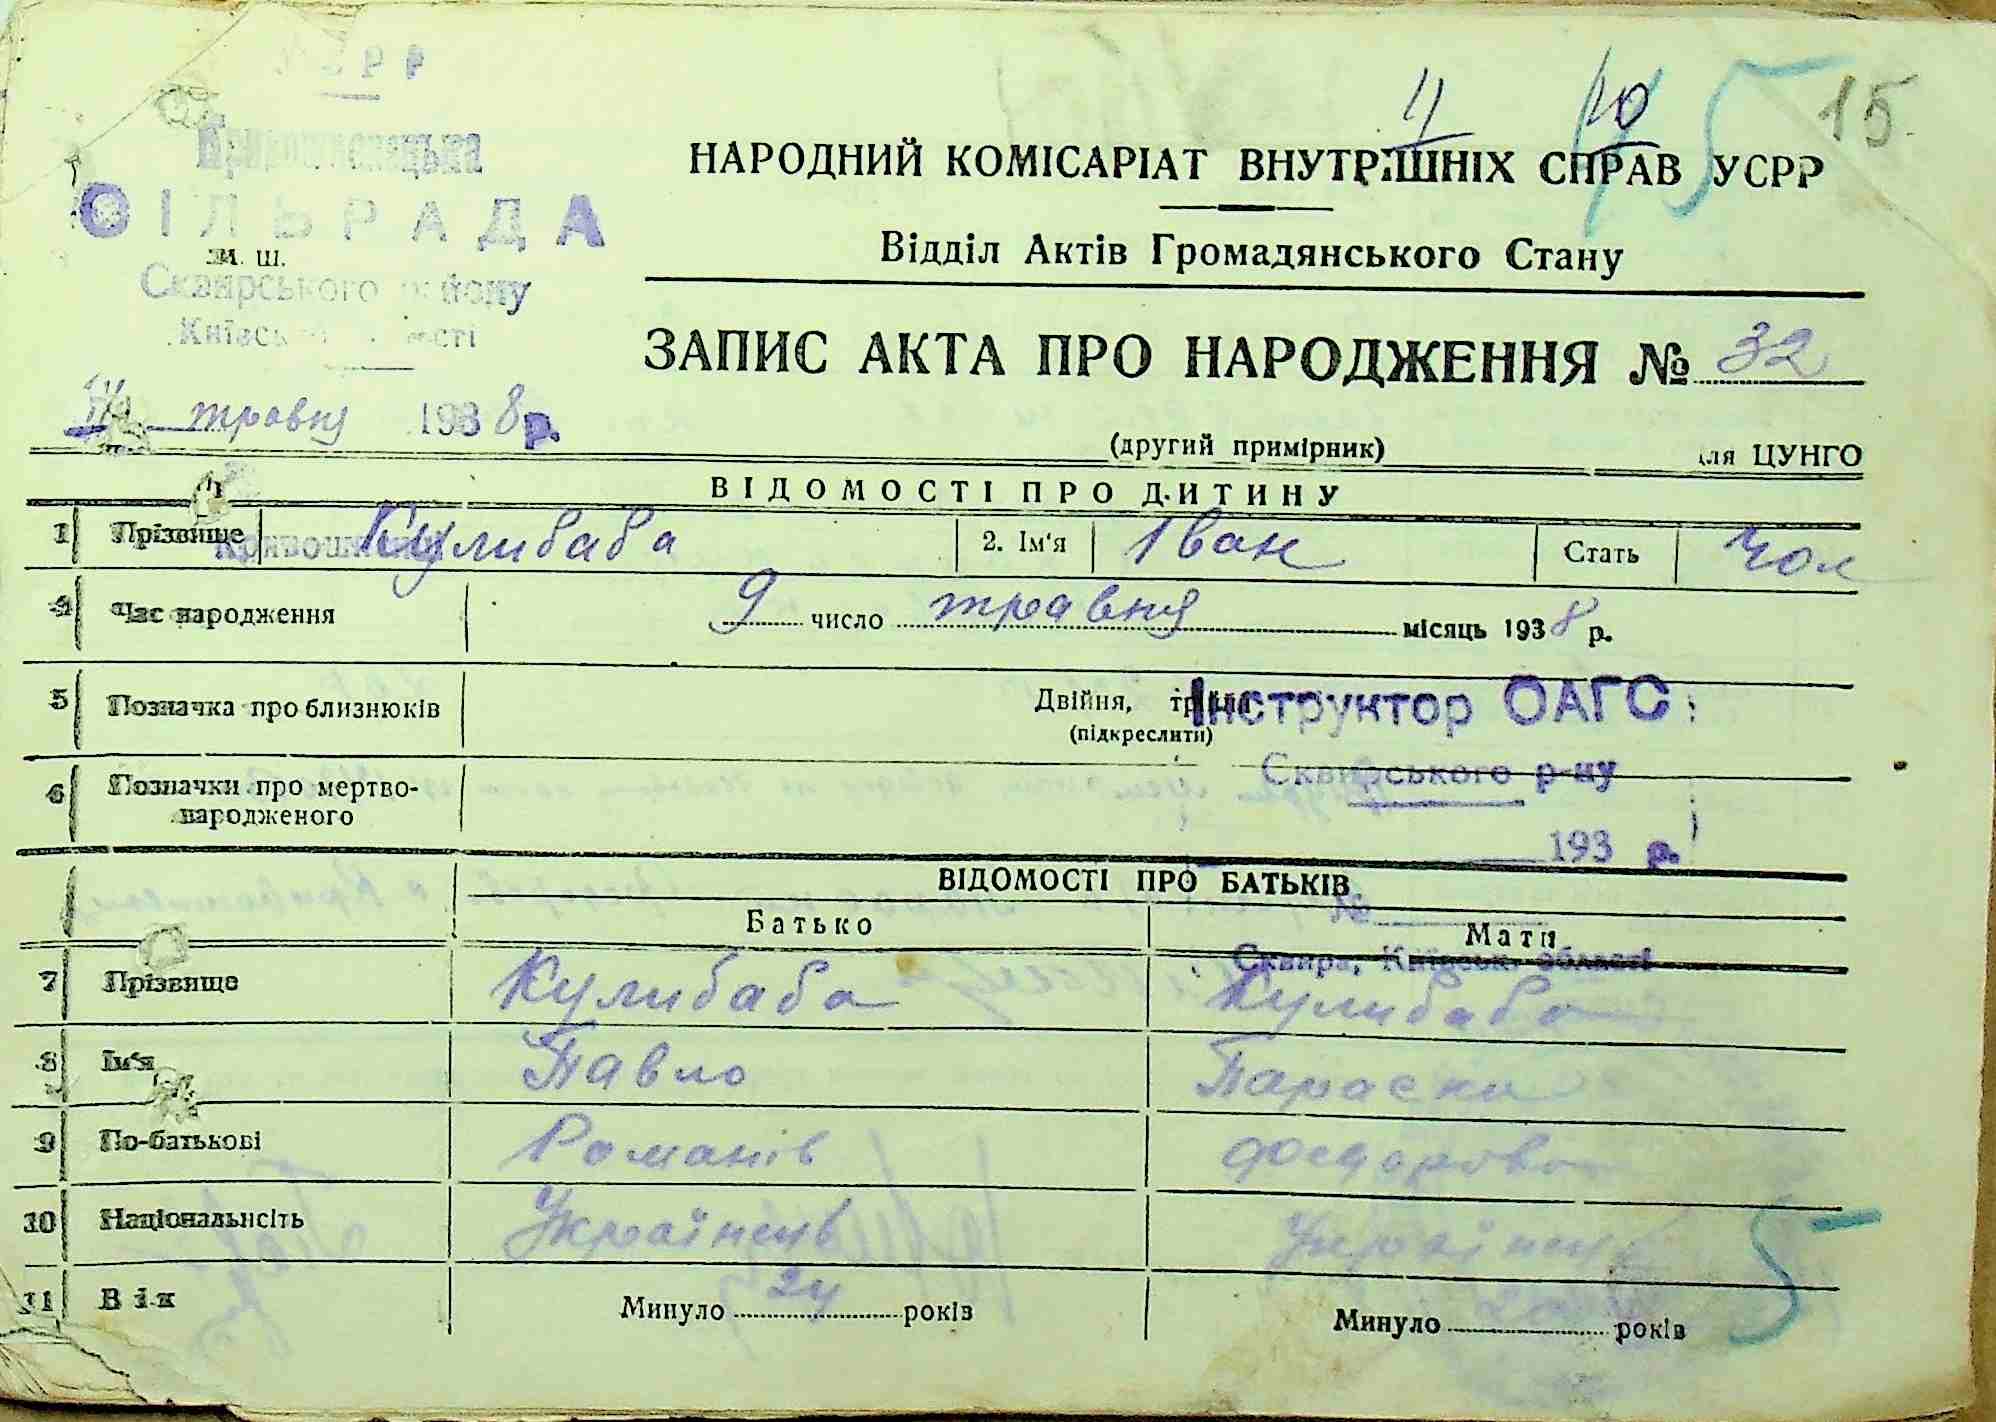 15
11 10 5
НАРОДНИЙ КОМІСАРІАТ ВНУТРІШНІХ СПРАВ УСРР
СІЛЬРАДА
м. ш.
Відділ Актів Громадянського Стану
Сквирського району
ЗАПИС АКТА ПРО НАРОДЖЕННЯ № 32
травня 1938 р.
(другий примірник) для ЦУНГО
ВІДОМОСТІ ПРО ДИТИНУ
1 Прізвище Кулибаба 2. Ім'я Іван Стать чол
4 Час народження 9 число травня місяць 1938 р.
5 Позначка про близнюків Двійня, трійня
(підкреслити)
Інструктор ОАГС
Сквирського р-ну
6 Позначки про мертво-
народженого
193 р.
ВІДОМОСТІ ПРО БАТЬКІВ
№
Батько Мати
Сквира, Київськ. області
7 Прізвище Кулибаба Кулибаба
8 Ім'я Павло Параска
9 По-батькові Романів
10 Національність Українець
5
11 Вік Минуло 24 років Минуло років